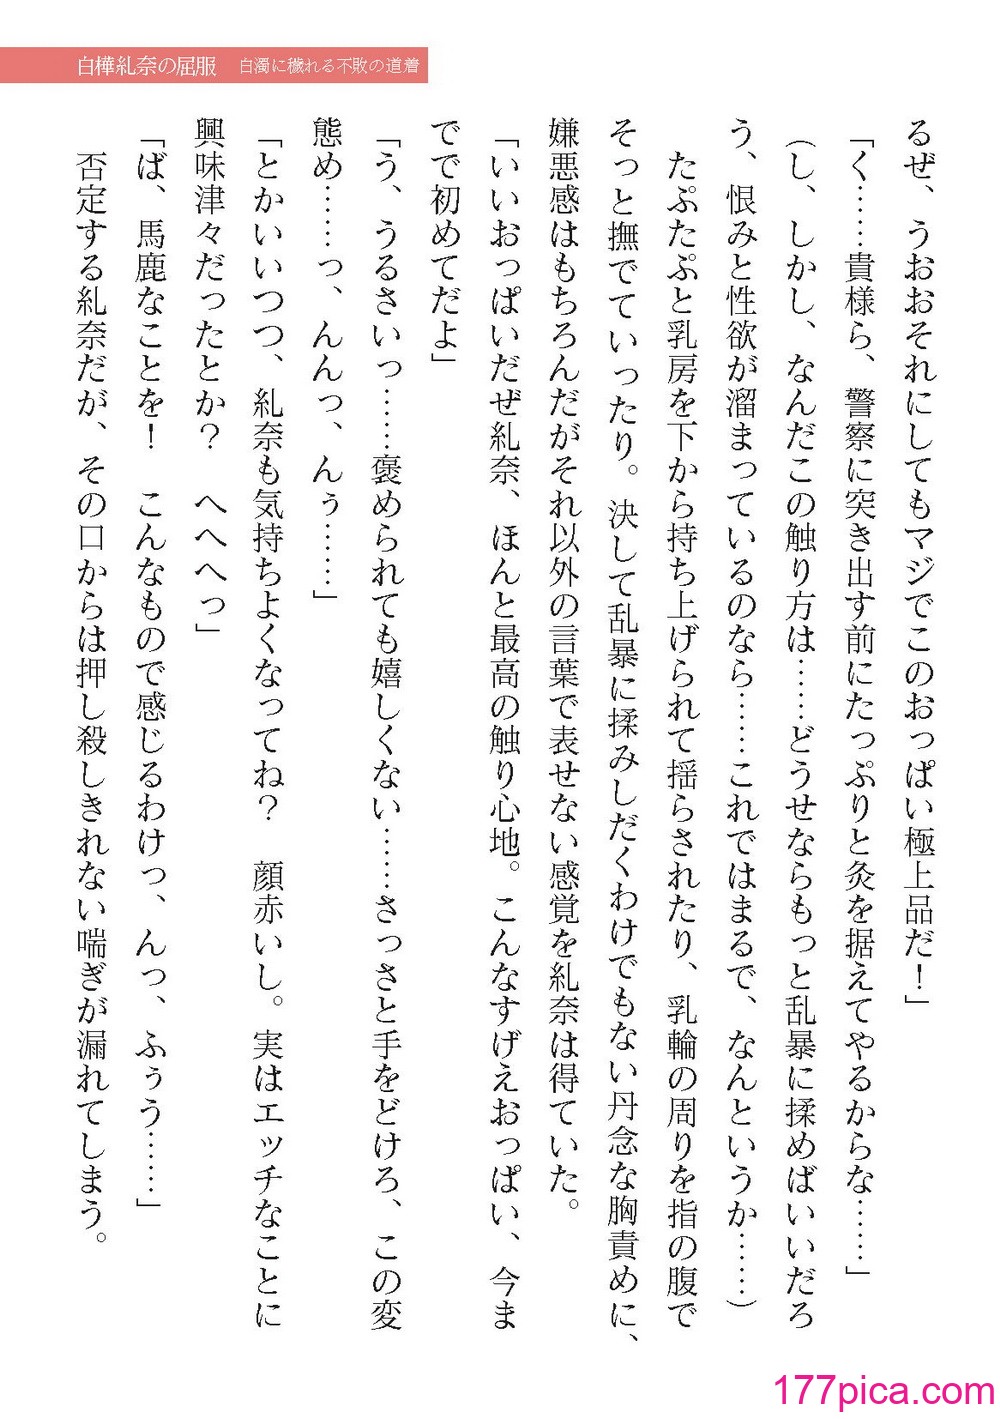 白樺糺奈の屈服　白濁に穢れる不敗の道着
るぜ、うおおそれにしてもマジでこのおっぱい極上品だ！」
「く……貴様ら、警察に突き出す前にたっぷりと灸を据えてやるからな……」
（し、しかし、なんだこの触り方は……どうせならもっと乱暴に揉めばいいだろ
う、恨みと性欲が溜まっているのなら……これではまるで、なんというか……）
　たぷたぷと乳房を下から持ち上げられて揺らされたり、乳輪の周りを指の腹で
そっと撫でていったり。決して乱暴に揉みしだくわけでもない丹念な胸責めに、
嫌悪感はもちろんだがそれ以外の言葉で表せない感覚を糺奈は得ていた。
「いいおっぱいだぜ糺奈、ほんと最高の触り心地。こんなすげえおっぱい、今ま
でで初めてだよ」
「う、うるさいっ……褒められても嬉しくない……さっさと手をどけろ、この変
態め……っ、んんっ、んぅ……」
「とかいいつつ、糺奈も気持ちよくなってね？　顔赤いし。実はエッチなことに
興味津々だったとか？　へへへっ」
「ば、馬鹿なことを！　こんなもので感じるわけっ、んっ、ふぅう……」
　否定する糺奈だが、その口からは押し殺しきれない喘ぎが漏れてしまう。
177pica.com